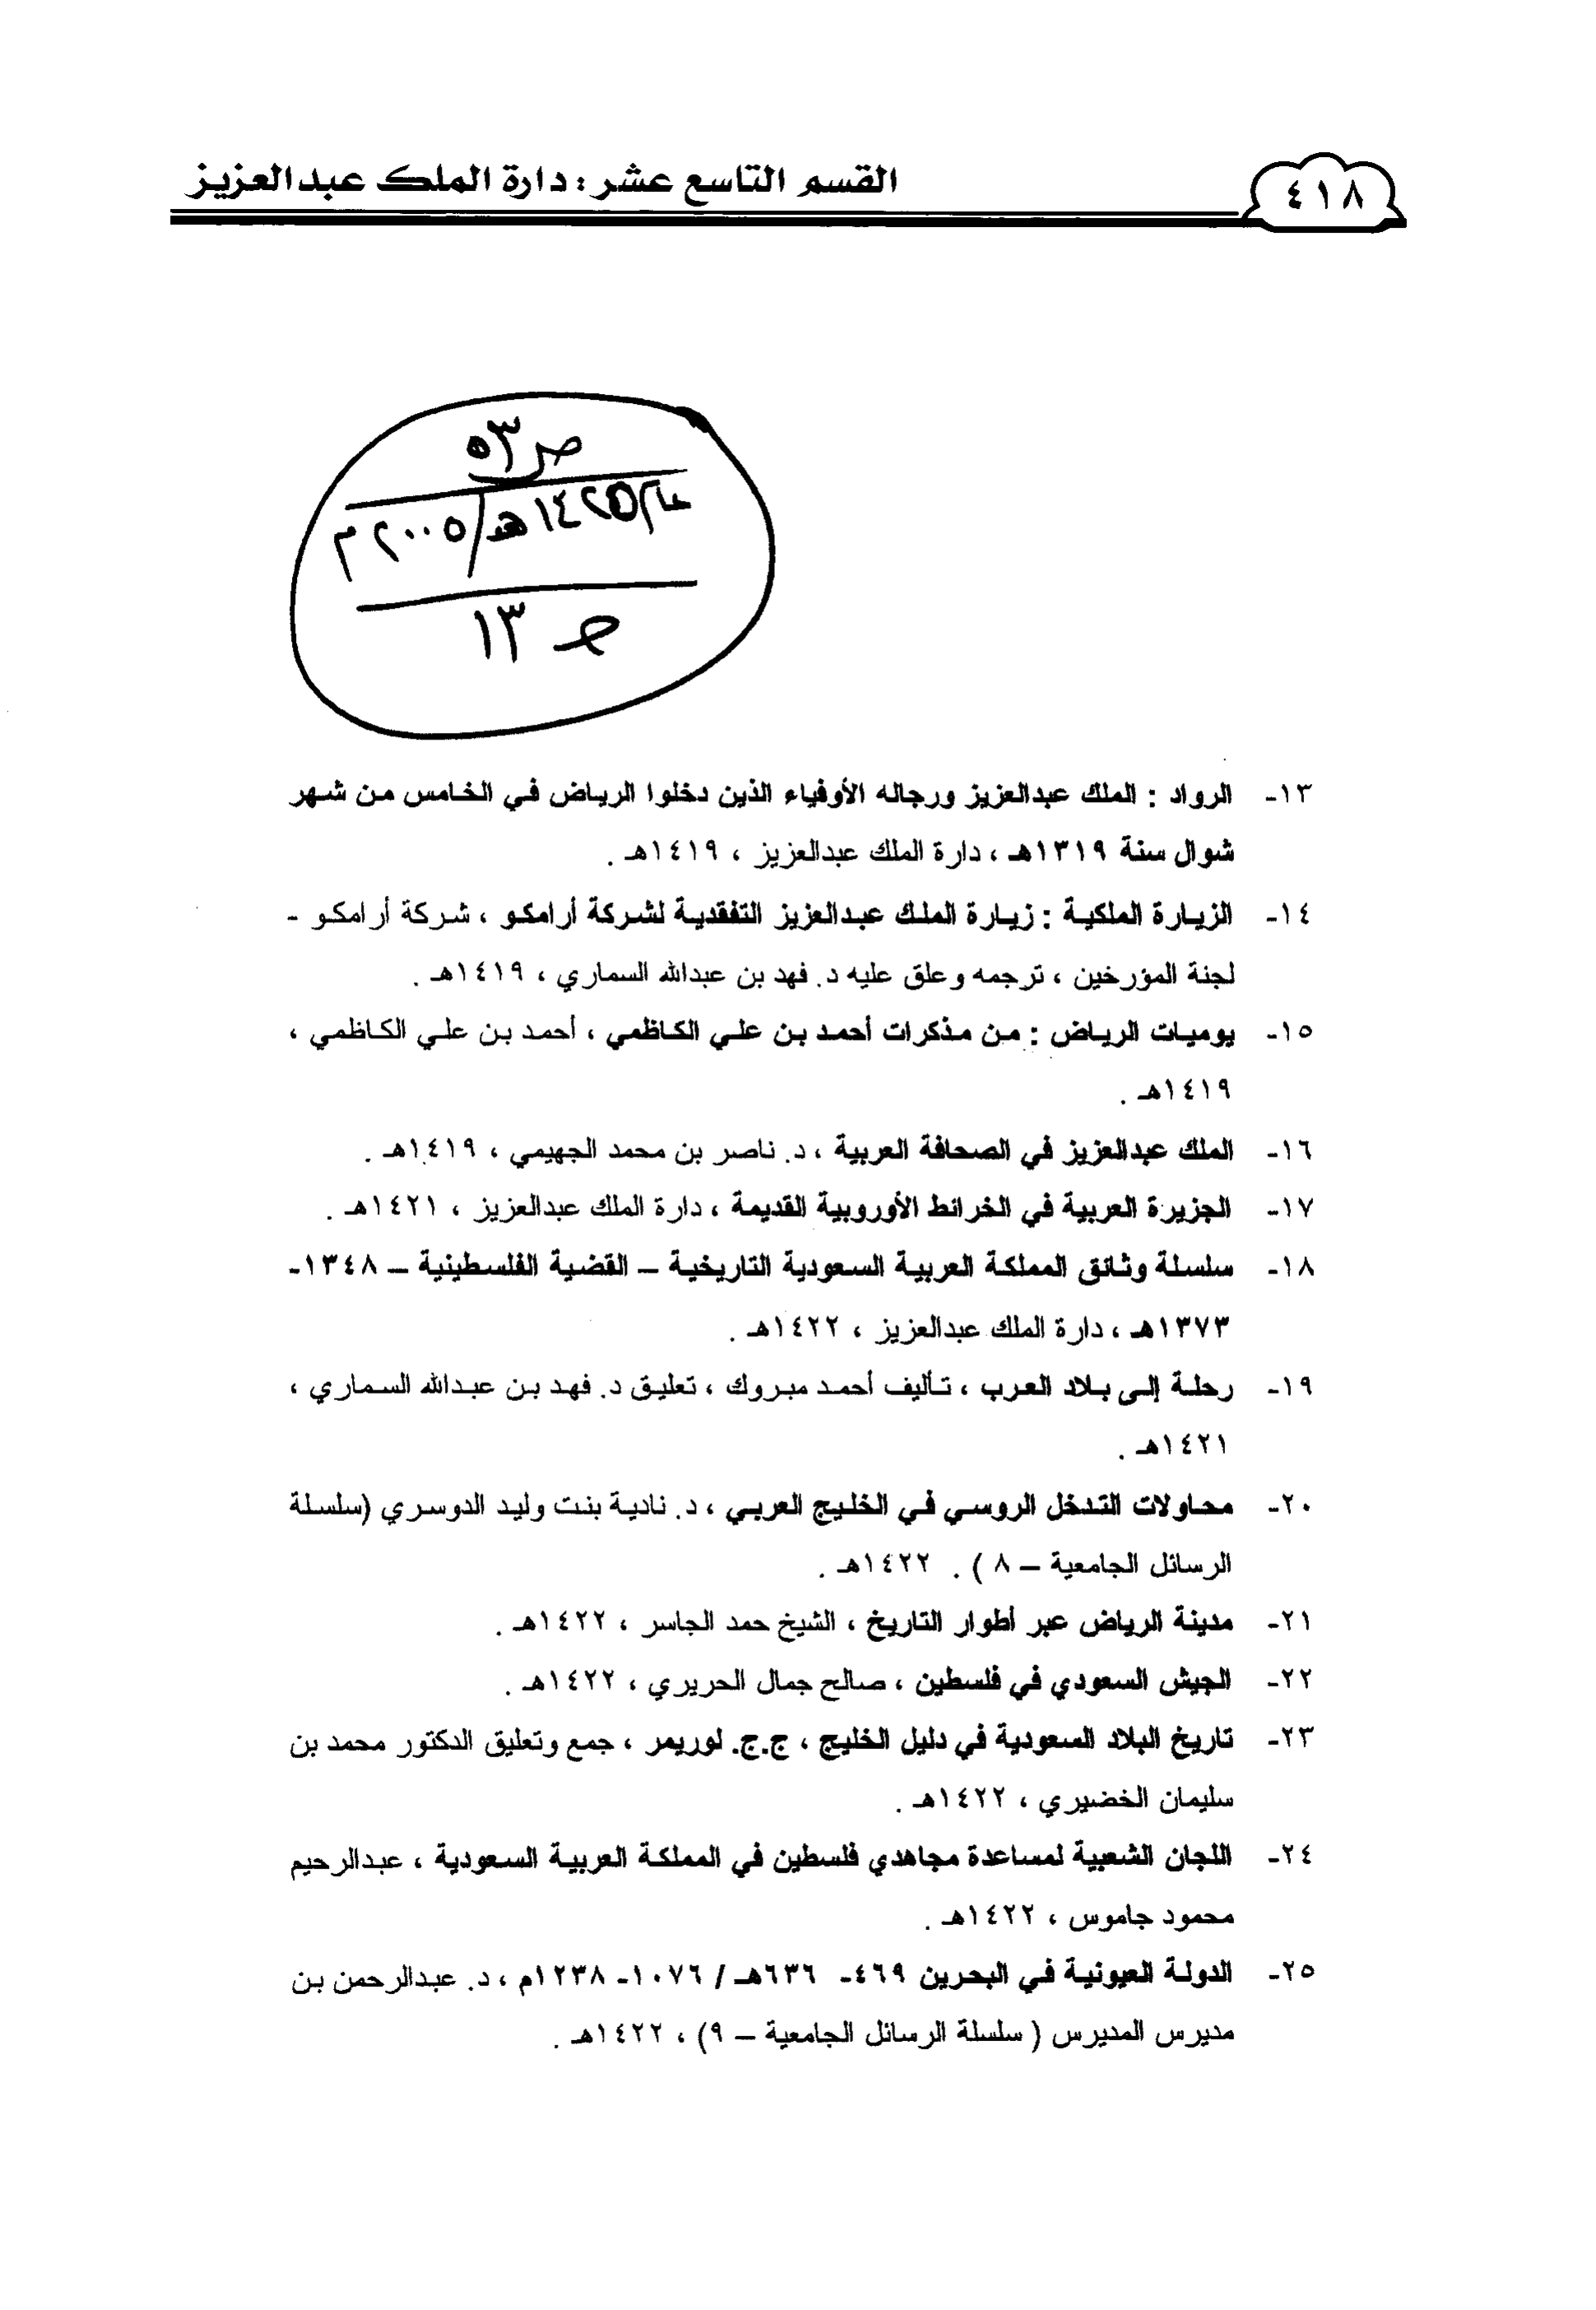 ٤١٨
القسم التاسع عشر : دارة الملك عبدالعزيز
ص ٥٣
عام ١٤٢٥هـ/٢٠٠٥م
حـ ١٣
١٣- الرواد : الملك عبدالعزيز ورجاله الأوفياء الذين دخلوا الرياض في الخامس من شهر
شوال سنة ١٣١٩هـ ، دارة الملك عبدالعزيز ، ١٤١٩هـ .
١٤- الزيارة الملكية : زيارة الملك عبدالعزيز التفقدية لشركة أرامكو ، شركة أرامكو -
لجنة المؤرخين ، ترجمه وعلق عليه د. فهد بن عبدالله السماري ، ١٤١٩هـ .
١٥- يوميات الرياض : من مذكرات أحمد بن علي الكاظمي ، أحمد بن علي الكاظمي ،
١٤١٩هـ .
١٦- الملك عبدالعزيز في الصحافة العربية ، د. ناصر بن محمد الجهيمي ، ١٤١٩هـ .
١٧- الجزيرة العربية في الخرائط الأوروبية القديمة ، دارة الملك عبدالعزيز ، ١٤٢١هـ .
١٨- سلسلة وثائق المملكة العربية السعودية التاريخية – القضية الفلسطينية – ١٣٤٨-
١٣٧٣هـ ، دارة الملك عبدالعزيز ، ١٤٢٢هـ .
١٩- رحلة إلى بلاد العرب ، تأليف أحمد مبروك ، تعليق د. فهد بن عبدالله السماري ،
١٤٢١هـ .
٢٠- محاولات التدخل الروسي في الخليج العربي ، د. نادية بنت وليد الدوسري (سلسلة
الرسائل الجامعية – ٨ ) . ١٤٢٢هـ .
٢١- مدينة الرياض عبر أطوار التاريخ ، الشيخ حمد الجاسر ، ١٤٢٢هـ .
٢٢- الجيش السعودي في فلسطين ، صالح جمال الحريري ، ١٤٢٢هـ .
٢٣- تاريخ البلاد السعودية في دليل الخليج ، ج.ج. لوريمر ، جمع وتعليق الدكتور محمد بن
سليمان الخضيري ، ١٤٢٢هـ .
٢٤- اللجان الشعبية لمساعدة مجاهدي فلسطين في المملكة العربية السعودية ، عبدالرحيم
محمود جاموس ، ١٤٢٢هـ .
٢٥- الدولة العيونية في البحرين ٤٦٩- ٦٣٦هـ / ١٠٧٦- ١٢٣٨م ، د. عبدالرحمن بن
مديرس المديرس ( سلسلة الرسائل الجامعية – ٩) ، ١٤٢٢هـ .